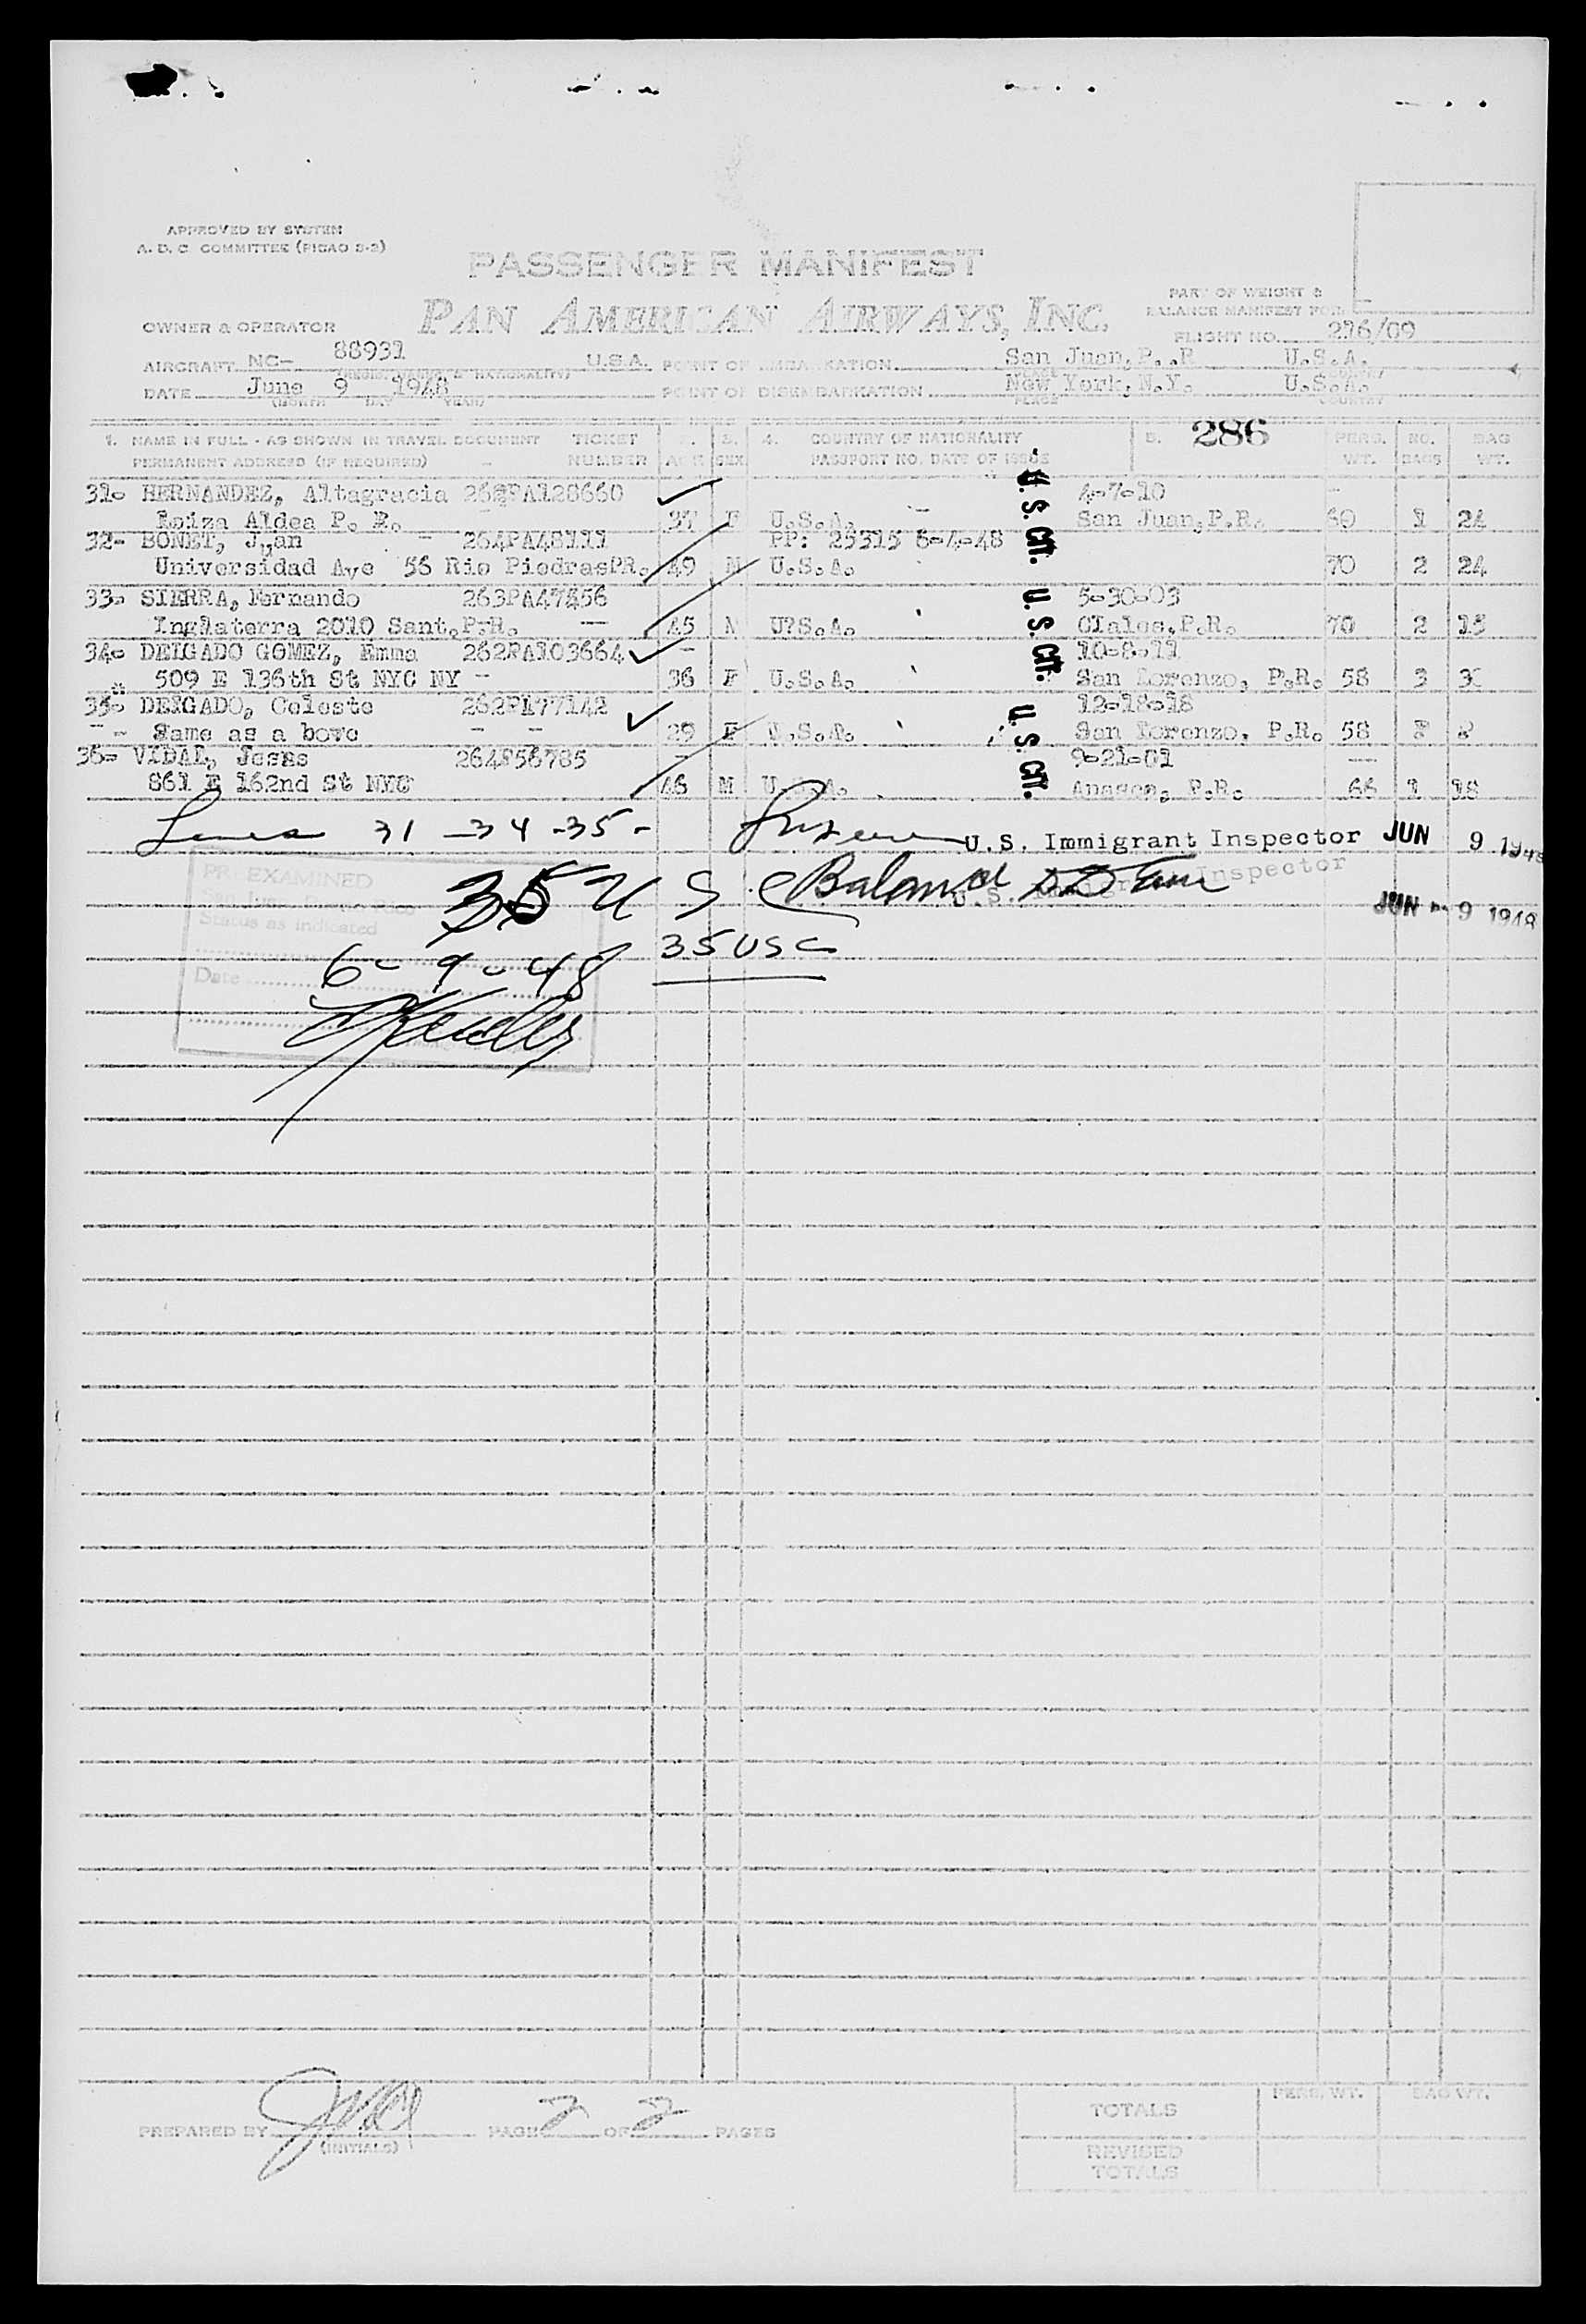 APPROVED BY SYSTEM
A. D. C. COMMITTEE (PICAO S-2)
PASSENGER MANIFEST
PAN AMERICAN AIRWAYS, INC.
PART OF WEIGHT &
BALANCE MANIFEST FOR
OWNER & OPERATOR
FLIGHT NO. 216/09
AIRCRAFT NC- 88931 U.S.A. POINT OF EMBARKATION San Juan, P..R U.S.A.
DATE June 9 1948 POINT OF DISEMBARKATION New York, N.Y. U.S.A.
(MONTH DAY YEAR) PLACE COUNTRY
1. NAME IN FULL - AS SHOWN IN TRAVEL DOCUMENT TICKET 3. 4. COUNTRY OF NATIONALITY 5. 286 PERS. NO. BAG
PERMANENT ADDRESS (IF REQUIRED) NUMBER AGE SEX PASSPORT NO. DATE OF ISSUE WT. BAGS WT.
31- HERNANDEZ, Altagracia 262PA128660 4-7-10
Loiza Aldea P. R. 37 F U.S.A. San Juan, P.R. 60 1 24
32- BONET, Juan 264PA48111 PP: 25315 6-4-48
Universidad Ave 56 Rio PiedrasPR. 49 M U.S.A. 70 2 24
33- SIERRA, Fernando 263PA47456 5-30-03
Inglaterra 2010 Sant.P.R. 45 M U?S.A. CIales, P.R. 70 2 15
34- DELGADO GOMEZ, Emma 262PA103664 10-8-11
509 E 136th St NYC NY - 36 F U.S.A. San Lorenzo, P.R. 58 3
35- DELGADO, Celeste 262P177142 12-18-18
Same as a bove 29 F U.S.A. San Lorenzo, P.R. 58
36- VIDAL, Jesus 264P56785 9-21-01
861 E 162nd St NYC 46 M U.S.A. Anasco, P.R. 66 1 18
U.S. CIT. U.S. CIT. U.S. CIT.
Lines 31 - 34 - 35 - U.S. Immigrant Inspector JUN 9 1948
35 U S C Balance U.S. Immigrant Inspector
JUN 9 1948
PRE EXAMINED
San Juan, Puerto Rico
Status as indicated
35 USC
Date 6-9-48
PREPARED BY (INITIALS) PAGE 2 OF 2 PAGES
PERS. WT. BAG WT.
TOTALS
REVISED
TOTALS